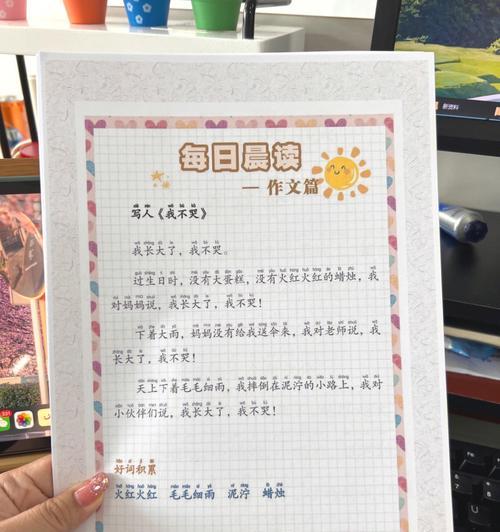 新资料
每日晨读
—作文篇
写人《我不哭》
我长大了，我不哭。
过生日时，没有大蛋糕，没有火红火红的蜡烛，我
对妈妈说，我长大了，我不哭！
下着大雨，妈妈没有给我送伞来，我对老师说，我
长大了，我不哭！
天上下着毛毛细雨，我摔倒在泥泞的小路上，我对
小伙伴们说，我长大了，我不哭！
好词积累
火红火红 毛毛细雨 泥泞 蜡烛